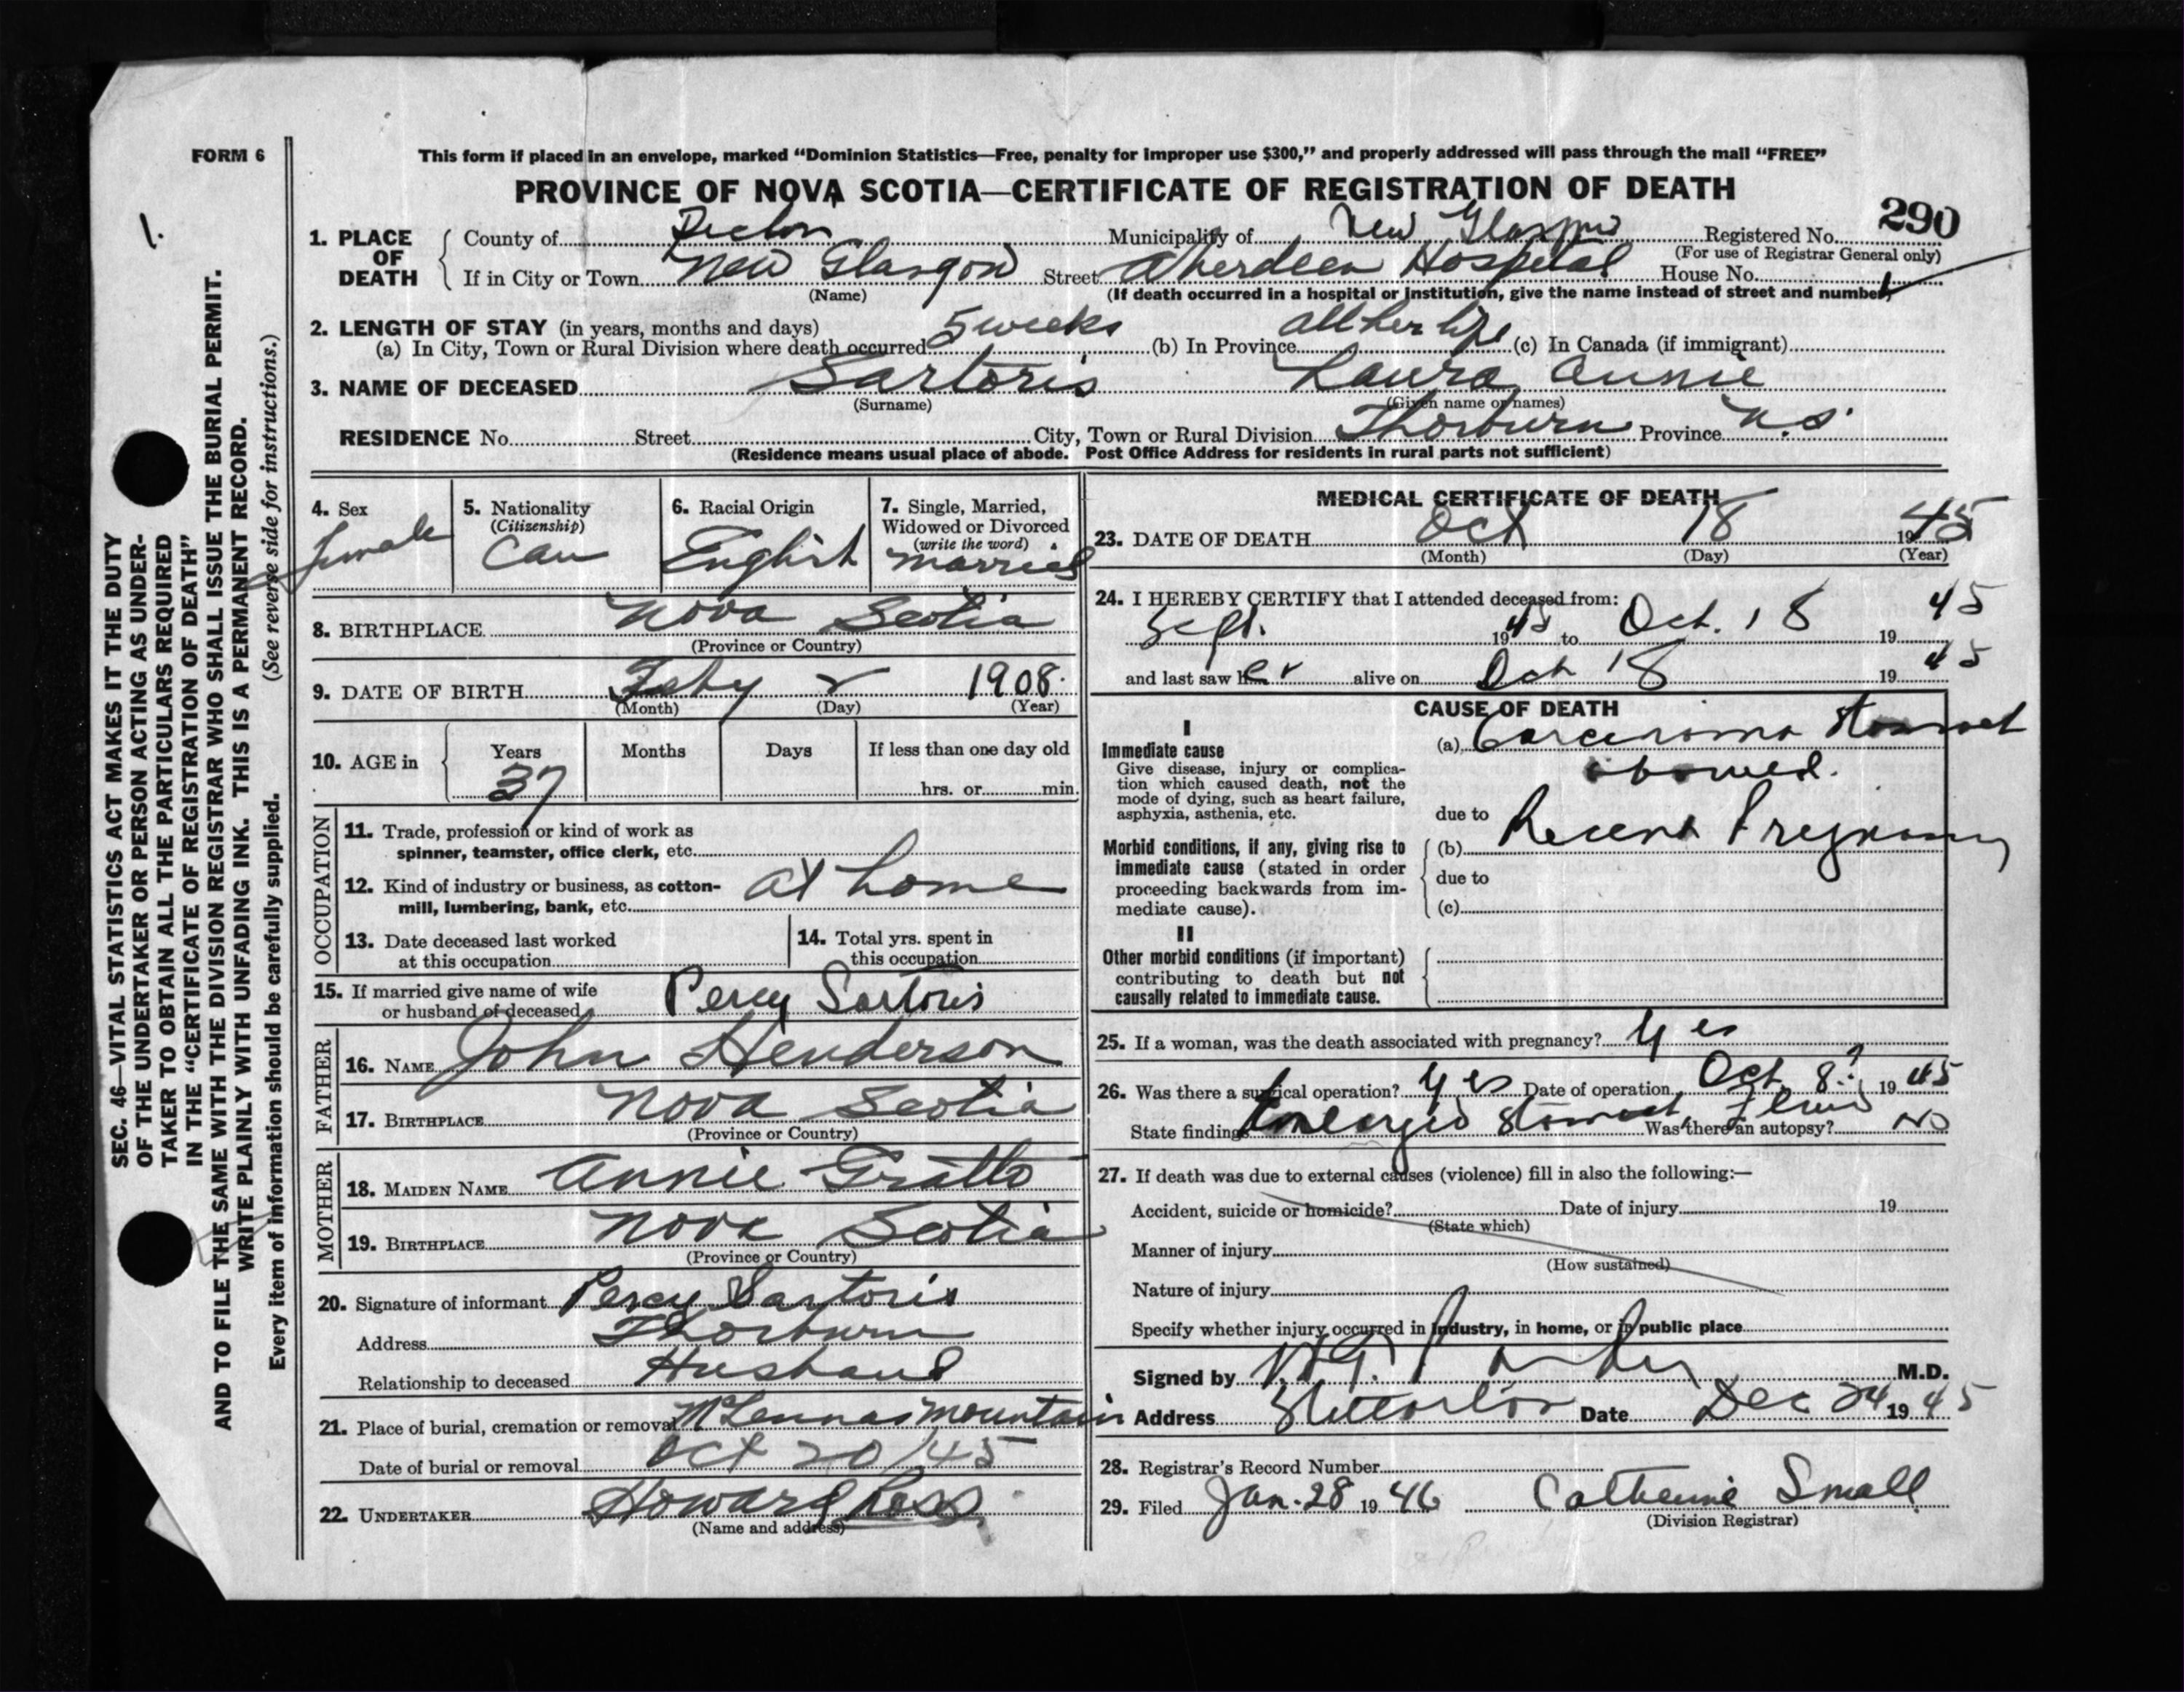 FORM 6
This form if placed in an envelope, marked “Dominion Statistics—Free, penalty for improper use $300,” and properly addressed will pass through the mail “FREE”
PROVINCE OF NOVA SCOTIA—CERTIFICATE OF REGISTRATION OF DEATH
290
1.
1. PLACE OF DEATH
County of Pictou Municipality of New Glasgow Registered No.
(For use of Registrar General only)
If in City or Town New Glasgow Street Aberdeen Hospital House No.
(Name) (If death occurred in a hospital or institution, give the name instead of street and number)
2. LENGTH OF STAY (in years, months and days)
(a) In City, Town or Rural Division where death occurred 5 weeks (b) In Province all her life (c) In Canada (if immigrant)
3. NAME OF DECEASED Sartoris Laura Annie
(Surname) (Given name or names)
RESIDENCE No. Street City, Town or Rural Division Thorburn Province N.S.
(Residence means usual place of abode. Post Office Address for residents in rural parts not sufficient)
4. Sex female
5. Nationality (Citizenship) Can
6. Racial Origin English
7. Single, Married, Widowed or Divorced (write the word) married
8. BIRTHPLACE Nova Scotia
(Province or Country)
9. DATE OF BIRTH Feby 2 1908
(Month) (Day) (Year)
10. AGE in Years 37 Months Days If less than one day old
hrs. or min.
OCCUPATION
11. Trade, profession or kind of work as
spinner, teamster, office clerk, etc.
12. Kind of industry or business, as cotton-
mill, lumbering, bank, etc. at home
13. Date deceased last worked
at this occupation
14. Total yrs. spent in
this occupation
15. If married give name of wife
or husband of deceased Percy Sartoris
FATHER
16. NAME John Henderson
17. BIRTHPLACE Nova Scotia
(Province or Country)
MOTHER
18. MAIDEN NAME Annie Gratto
19. BIRTHPLACE Nova Scotia
(Province or Country)
20. Signature of informant Percy Sartoris
Address Thorburn
Relationship to deceased Husband
21. Place of burial, cremation or removal McLennas Mountain
Date of burial or removal Oct 20/45
22. UNDERTAKER Howard Ross
(Name and address)
MEDICAL CERTIFICATE OF DEATH
23. DATE OF DEATH Oct 18 1945
(Month) (Day) (Year)
24. I HEREBY CERTIFY that I attended deceased from:
Sept. 1945 to Oct. 18 19 45
and last saw her alive on Oct 18 19 45
CAUSE OF DEATH
I
Immediate cause
Give disease, injury or complica-
tion which caused death, not the
mode of dying, such as heart failure,
asphyxia, asthenia, etc.
(a) Carcinoma Stomach
bowel.
due to
Morbid conditions, if any, giving rise to
immediate cause (stated in order
proceeding backwards from im-
mediate cause).
(b) Recent Pregnancy
due to
(c)
II
Other morbid conditions (if important)
contributing to death but not
causally related to immediate cause.
25. If a woman, was the death associated with pregnancy? Yes
26. Was there a surgical operation? Yes Date of operation Oct. 8? 19 45
State findings Enlarged Stomach Was there an autopsy? No
27. If death was due to external causes (violence) fill in also the following:—
Accident, suicide or homicide? Date of injury 19
(State which)
Manner of injury
(How sustained)
Nature of injury
Specify whether injury occurred in industry, in home, or in public place
Signed by M.D.
Address Date Dec 24 19 45
28. Registrar's Record Number
29. Filed Jan. 28 19 46 Catherine Small
(Division Registrar)
SEC. 46—VITAL STATISTICS ACT MAKES IT THE DUTY
OF THE UNDERTAKER OR PERSON ACTING AS UNDER-
TAKER TO OBTAIN ALL THE PARTICULARS REQUIRED
IN THE “CERTIFICATE OF REGISTRATION OF DEATH”
AND TO FILE THE SAME WITH THE DIVISION REGISTRAR WHO SHALL ISSUE THE BURIAL PERMIT.
WRITE PLAINLY WITH UNFADING INK. THIS IS A PERMANENT RECORD.
Every item of information should be carefully supplied. (See reverse side for instructions.)